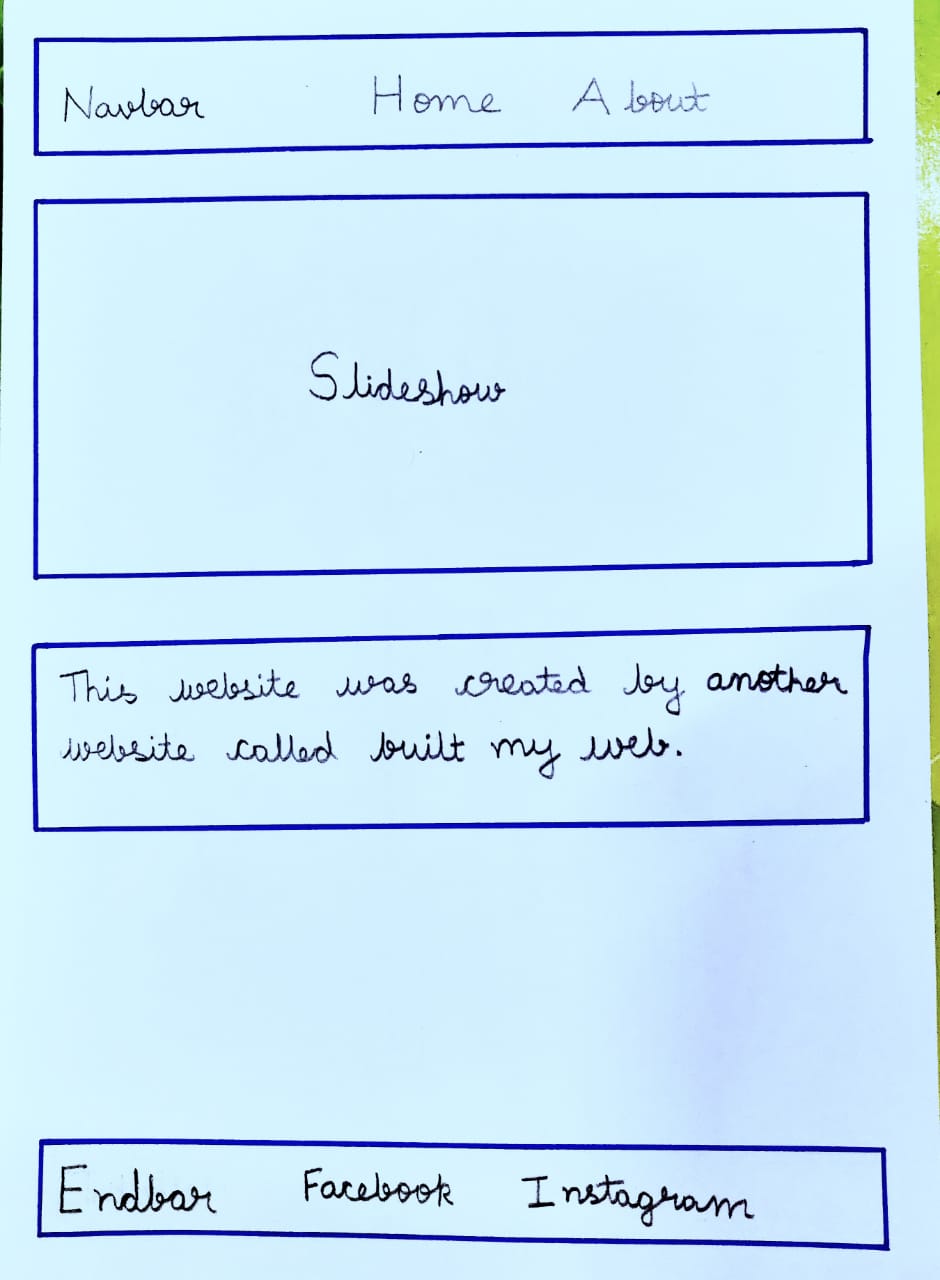 Navbar Home About
Slideshow
This website was created by another
website called built my web.
Endbar Facebook Instagram